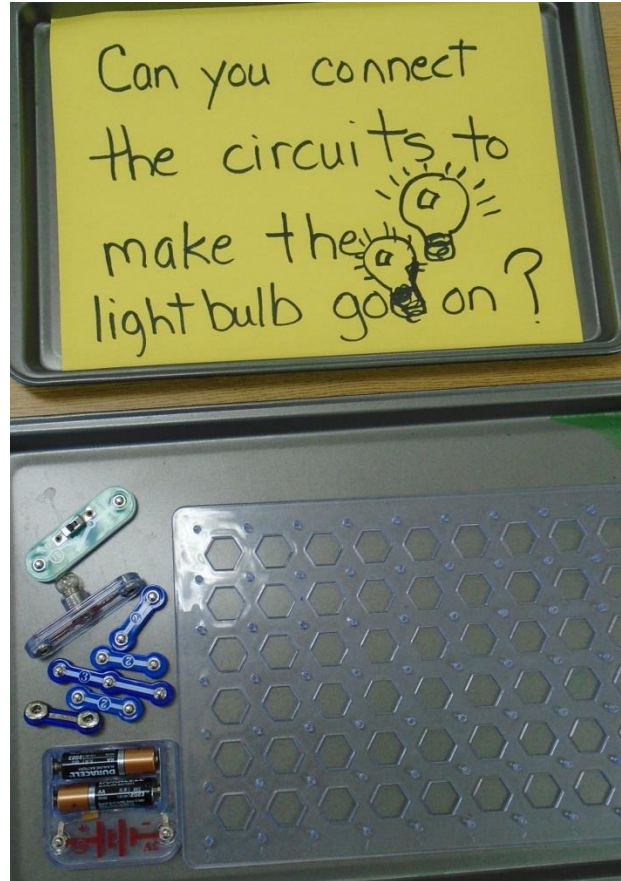 Can you connect
the circuits to
make the
lightbulb go on?
2
2
3
2
DURACELL
+
3V